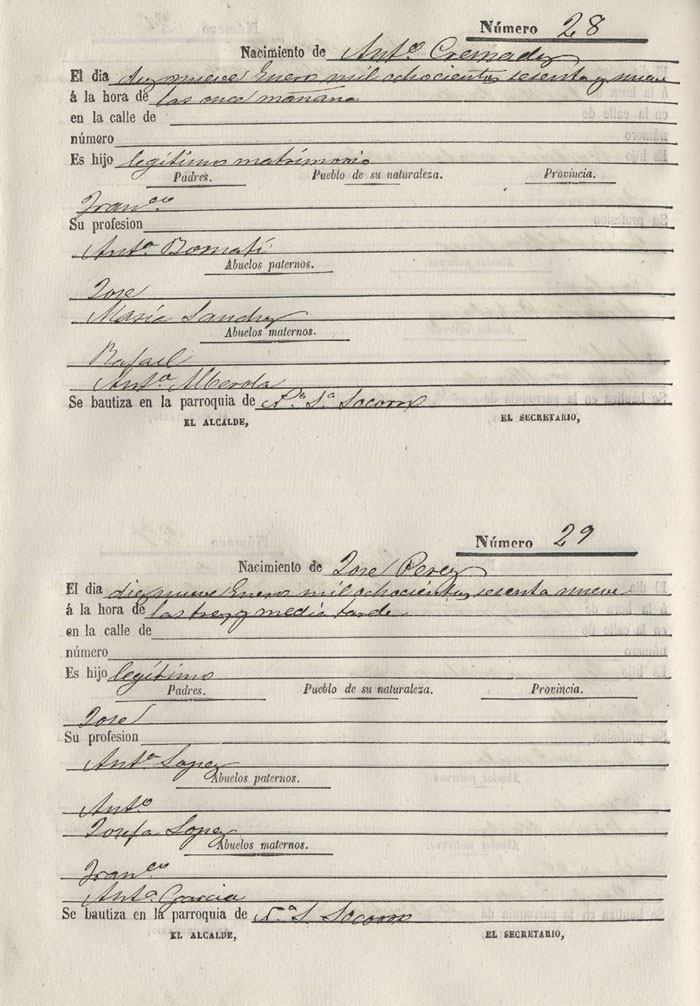 Número 28
Nacimiento de Antº Cremades
El dia diez nueve Enero mil ochocientos sesenta y nueve
á la hora de las once mañana
en la calle de
número
Es hijo legítimo matrimonio
Padres. Pueblo de su naturaleza. Provincia.
Franco
Su profesion
Antª Bomati
Abuelos paternos.
José
Maria Sanchez
Abuelos maternos.
Rafael
Antª Alberola
Se bautiza en la parroquia de Nª Sª Socorro
EL ALCALDE, EL SECRETARIO,
Número 29
Nacimiento de José Perez
El dia diez nueve Enero mil ochocientos sesenta nueve
á la hora de las tres y media tarde
en la calle de
número
Es hijo legítimo
Padres. Pueblo de su naturaleza. Provincia.
José
Su profesion
Antª Lopez
Abuelos paternos.
Antº
Josefa Lopez
Abuelos maternos.
Franco
Antª Garcia
Se bautiza en la parroquia de Nª S. Socorro
EL ALCALDE, EL SECRETARIO,